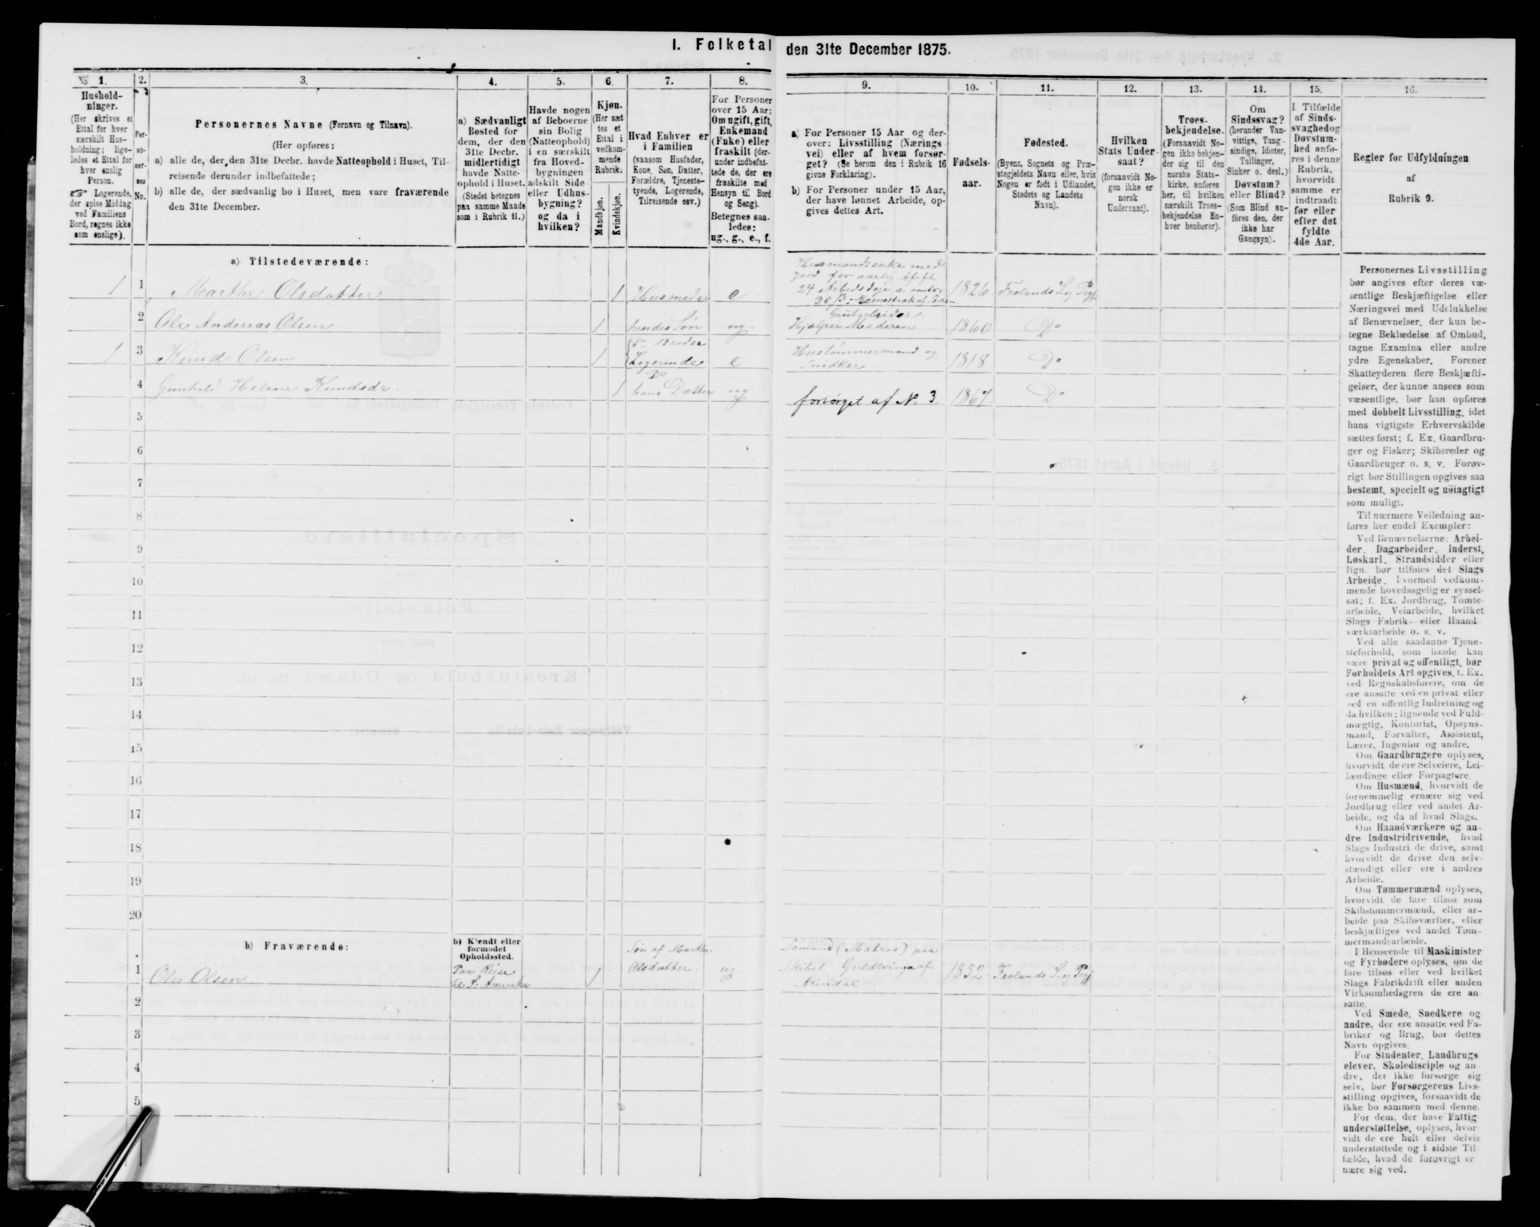 I. Folketal den 31te December 1875.
1.
Hushold-
ninger.
(Her skrives et
Ettal for hver
særskilt Hus-
holdning; lige-
ledes et Ettal for
hver enslig
Person.
Logerende,
der spise Middag
ved Familiens
Bord, regnes ikke
som enslige).
2.
Per-
so-
ner-
nes
No.
3.
Personernes Navne (Fornavn og Tilnavn).
(Her opføres:
a) alle de, der den 31te Decbr. havde Natteophold i Huset, Til-
reisende derunder indbefattede;
b) alle de, der sædvanlig bo i Huset, men vare fraværende
den 31te December.
4.
a) Sædvanligt
Bosted for
dem, der den
31te Decbr.
midlertidigt
havde Natte-
ophold i Huset.
(Stedet betegnes
paa samme Maade
som i Rubrik 11.)
5.
Havde nogen
af Beboerne
sin Bolig
(Natteophold)
i en særskilt
fra Hoved-
bygningen
adskilt Side-
eller Udhus-
bygning?
og da i
hvilken?
6.
Kjøn.
(Her sæt-
tes et
Ettal i
vedkom-
mende
Rubrik.
Mandkjøn.
Kvindekjøn.
7.
Hvad Enhver er
i Familien
(saasom Husfader,
Kone, Søn, Datter,
Forældre, Tjeneste-
tyende, Logerende,
Tilreisende osv.)
8.
For Personer
over 15 Aar:
Om ugift, gift,
Enkemand
(Enke) eller
fraskilt (der-
under indbefat-
tede de, der ere
fraskilte med
Hensyn til Bord
og Seng).
Betegnes saa-
ledes:
ug., g., e., f.
9.
a) For Personer 15 Aar og der-
over: Livsstilling (Nærings-
vei) eller af hvem forsør-
get? (Se herom den i Rubrik 16
givne Forklaring).
b) For Personer under 15 Aar,
der have lønnet Arbeide, op-
gives dettes Art.
10.
Fødsels-
aar.
11.
Fødested.
(Byens, Sognets og Præ-
stegjeldets Navn eller, hvis
Nogen er født i Udlandet,
Stedets og Landets
Navn).
12.
Hvilken
Stats Under-
saat?
(forsaavidt No-
gen ikke er
norsk
Undersaat).
13.
Troes-
bekjendelse.
(Forsaavidt No-
gen ikke bekjen-
der sig til den
norske Stats-
kirke, anføres
her, til hvilken
særskilt Troes-
bekjendelse En-
hver henhører).
14.
Om
Sindssvag?
(herunder Van-
vittige, Tung-
sindige, Idioter,
Tullinger,
Sinker o. desl.)
Døvstum?
eller Blind?
(Som Blind an-
føres den, der
ikke har
Gangsyn).
15.
I Tilfælde
af Sinds-
svaghed og
Døvstum-
hed anfø-
res i denne
Rubrik,
hvorvidt
samme er
indtraadt
før eller
efter det
fyldte
4de Aar.
16.
Regler for Udfyldningen
af
Rubrik 9.
a) Tilstedeværende:
1 1 Marthe Olsdatter 1 Husmoder e Husmandsenke med
Jord for aarlig Afgift
24 Arbeidsdage 1826 Froland
2 Ole Andreas Olsen 1 hendes Søn ug. Hjælper Moderen 1860 Do
1 3 Knud Olsen 1 Logerende e Hustømmermand og
Snidker 1818 Do
4 Gunhild Helene Knudsdr. 1 hans Datter ug forsørget af N. 3 1867 Do
5
6
7
8
9
10
11
12
13
14
15
16
17
18
19
20
b) Fraværende:
b) Kjendt eller
formodet
Opholdssted.
1 Ole Olsen Paa Reise
S. Amerika 1 Søn af Marthe
Olsdatter. ug. Sømand (Matros) paa
Skibet af
Arendal 1852 Froland
2
3
4
5
Personernes Livsstilling
bør angives efter deres væ-
sentlige Beskjæftigelse eller
Næringsvei med Udelukkelse
af Benævnelser, der kun be-
tegne Beklædelse af Ombud,
tagne Examina eller andre
ydre Egenskaber. Forener
Skatteyderen flere Beskjæfti-
gelser, der kunne ansees som
væsentlige, bør han opføres
med dobbelt Livsstilling, idet
hans vigtigste Erhvervskilde
sættes først; f. Ex. Gaardbru-
ger og Fisker; Skibsreder og
Gaardbruger o. s. v. Forøv-
rigt bør Stillingen opgives saa
bestemt, specielt og nøiagtigt
som muligt.
Til nærmere Veiledning an-
føres her endel Exempler:
Ved Benævnelserne: Arbei-
der, Dagarbeider, Inderst,
Løskarl, Strandsidder eller
lign. bør tilføies det Slags
Arbeide, hvormed vedkom-
mende hovedsagelig er syssel-
sat; f. Ex. Jordbrug, Tomte-
arbeide, Veiarbeide, hvilket
Slags Fabrik- eller Haand-
værksarbeide o. s. v.
Ved alle saadanne Tjene-
steforhold, som baade kan
være privat og offentligt, bør
Forholdets Art opgives, f. Ex.
ved Regnskabsførere, om de
ere ansatte ved en privat eller
ved en offentlig Indretning og
da hvilken; lignende ved Fuld-
mægtig, Kontorist, Opsyns-
mand, Forvalter, Assistent,
Lærer, Ingeniør og andre.
Om Gaardbrugere oplyses,
hvorvidt de ere Selveiere, Lei-
lændinge eller Forpagtere.
Om Husmænd, hvorvidt de
fornemmelig ernære sig ved
Jordbrug eller ved andet Ar-
beide, og da af hvad Slags.
Om Haandværkere og an-
dre Industridrivende, hvad
Slags Industri de drive, samt
hvorvidt de drive den selv-
stændigt eller ere i andres
Arbeide.
Om Tømmermænd oplyses,
hvorvidt de fare tilsøs som
Skibstømmermænd, eller ar-
beide paa Skibsværfter, eller
beskjæftiges ved andet Tøm-
mermandsarbeide.
I Henseende til Maskinister
og Fyrbødere oplyses, om de
fare tilsøs eller ved hvilket
Slags Fabrikdrift eller anden
Virksomhedsgren de ere an-
satte.
Ved Smede, Snedkere og
andre, der ere ansatte ved Fa-
briker og Brug, bør dettes
Navn opgives.
For Studenter, Landbrugs-
elever, Skoledisciple og an-
dre, der ikke forsørge sig
selv, bør Forsørgerens Livs-
stilling opgives, forsaavidt de
ikke bo sammen med denne.
For dem, der have Fattig-
understøttelse, oplyses, hvor-
vidt de ere helt eller delvis
understøttede og i sidste Til-
fælde, hvad de forøvrigt er-
nære sig ved.